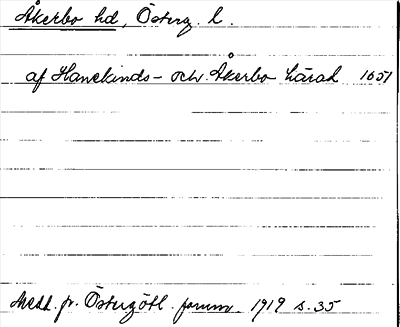 Åkerbo hd, Österg. l.
af Hanekinds- och Åkerbo härad 1651
Medd. fr. Östergötl. fornm. 1919 s. 35